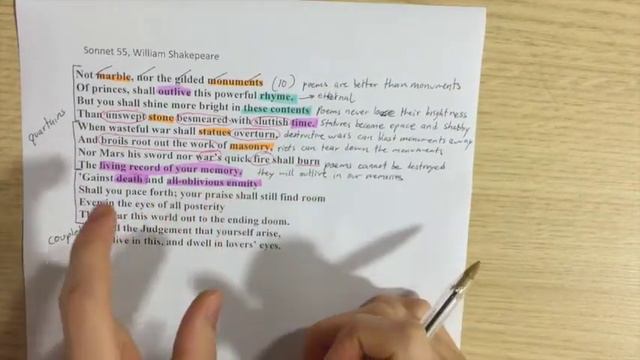 Sonnet 55, William Shakespeare
Not marble, nor the gilded monuments (10) poems are better than monuments
Of princes, shall outlive this powerful rhyme, → eternal
But you shall shine more bright in these contents poems never lose their brightness
Than unswept stone besmeared with sluttish time. Statures become and shabby
When wasteful war shall statues overturn, destructive wars can blast monuments away
And broils root out the work of masonry, riots can tear down the monuments
Nor Mars his sword nor war's quick fire shall burn poems cannot be destroyed
The living record of your memory, they will outlive in our memories
'Gainst death and all-oblivious enmity
Shall you pace forth; your praise shall still find room
Even in the eyes of all posterity
this world out to the ending doom.
the Judgement that yourself arise,
live in this, and dwell in lovers' eyes.
quartrains
couplet